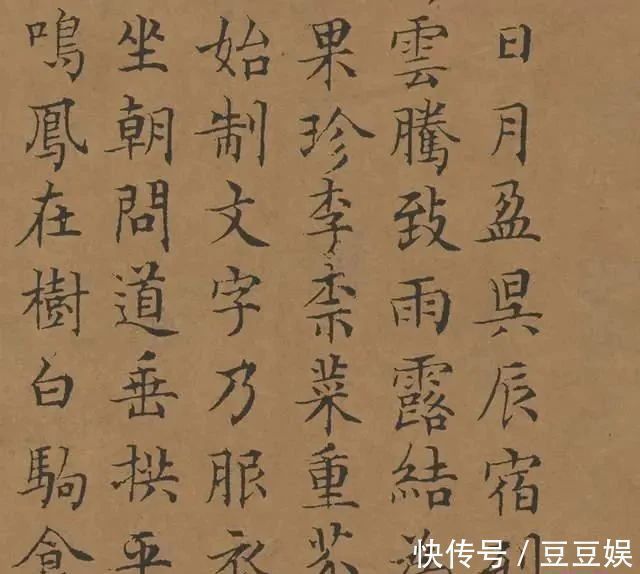 日月盈昃辰宿列
雲騰致雨露結為
果珍李柰菜重芥
始制文字乃服衣
坐朝問道垂拱平
鳴鳳在樹白駒食
快传号／豆豆娱